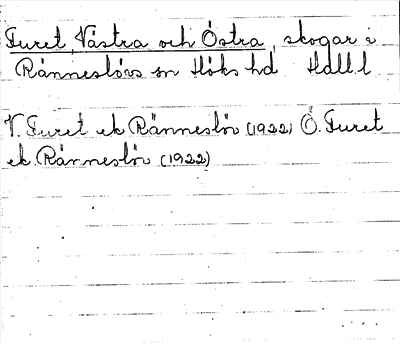 Furet, Västra och Östra, skogar i
Ränneslövs sn Höks hd Hall.l.
V. Furet ek Ränneslöv (1922) Ö. Furet
ek. Ränneslöv (1922)